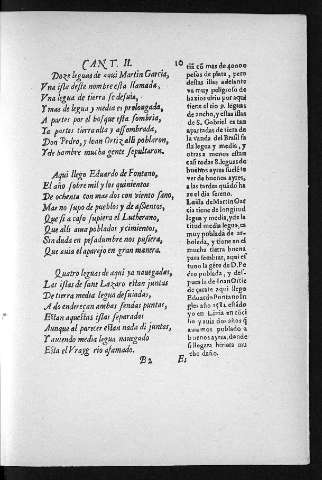 CANT. II.
10
Doze leguas de aqui Martin Garcia,
Vna isla deste nombre està llamada,
Vna legua de tierra se desuia,
Y mas de legua y media es prolongada,
A partes por el bosque esta sombria,
Ya partes tierra alta y assombrada,
Don Pedro, y Ioan Ortiz alli poblaron,
Y de hombre mucha gente sepultaron.
Aqui llego Eduardo de Fontano,
El año sobre mil y los quinientos
De ochenta con mas dos con viento sano,
Mas no supo de pueblos y de assientos,
Que si a caso supiera el Lutherano,
Que alli auia poblados y cimientos,
Sin duda en pesadumbre nos pusiera,
Que auia el aparejo en gran manera.
Quatro leguas de aqui ya nauegadas,
Las islas de sant Lazaro estan juntas
De tierra media legua desuiadas,
A do enderecan ambas sendas puntas,
Estan aquestas islas separadas
Aunque al parecer estan nada di juntas,
Y auiendo media legua nauegado
Esta el Vruyg rio afamado.
B2
tiñ cõ mas de 40000
pesos de plata, pero
destas islas adelante
va muy peligroso de
baxios
tiene el rio 9. leguas
de ancho, y estas islas
de S. Gabriel es tan
apartadas de tierra de
la vanda del Brasil
legua y media, y
otras a menos estan
casi todas 8. leguas de
buenos ayres
ver de buenos ayres,
a las tardes quãdo ha
ze el dia sereno.
La isla de Martin Gar
cia tiene de longitud
legua y media, y de la
titud media legua, es
muy poblada de ar-
boleda, y tiene en el
mucha tierra buena
para sembrar, aqui es
tuuo la gẽte de D. Pe
dro poblada, y des-
pues la de Ioan Ortiz
de çarate aqui llego
Eduardo Fontano In
gles año 1582. estãdo
yo en
he y
auamos poblado a
buenos ayres, donde
si llegara hiziera mu
cho daño.
Es